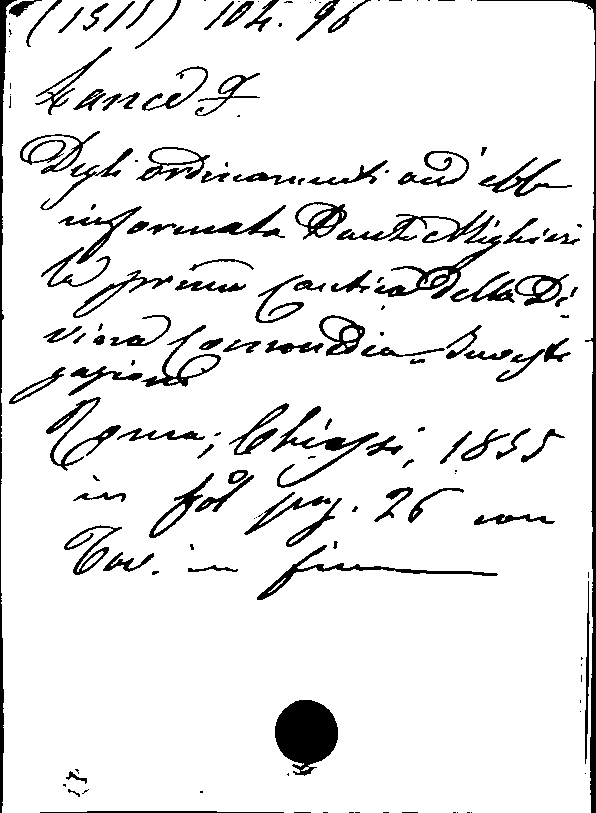 (1511) 104. 96
Lanci F.
Degli ordinamenti ond' ebbe
informata Dante Alighieri
la prima Cantica della Di-
vina Commedia. Investi
gazione
Roma; Chiassi, 1855
in fol pag. 26 con
Tav. in fine